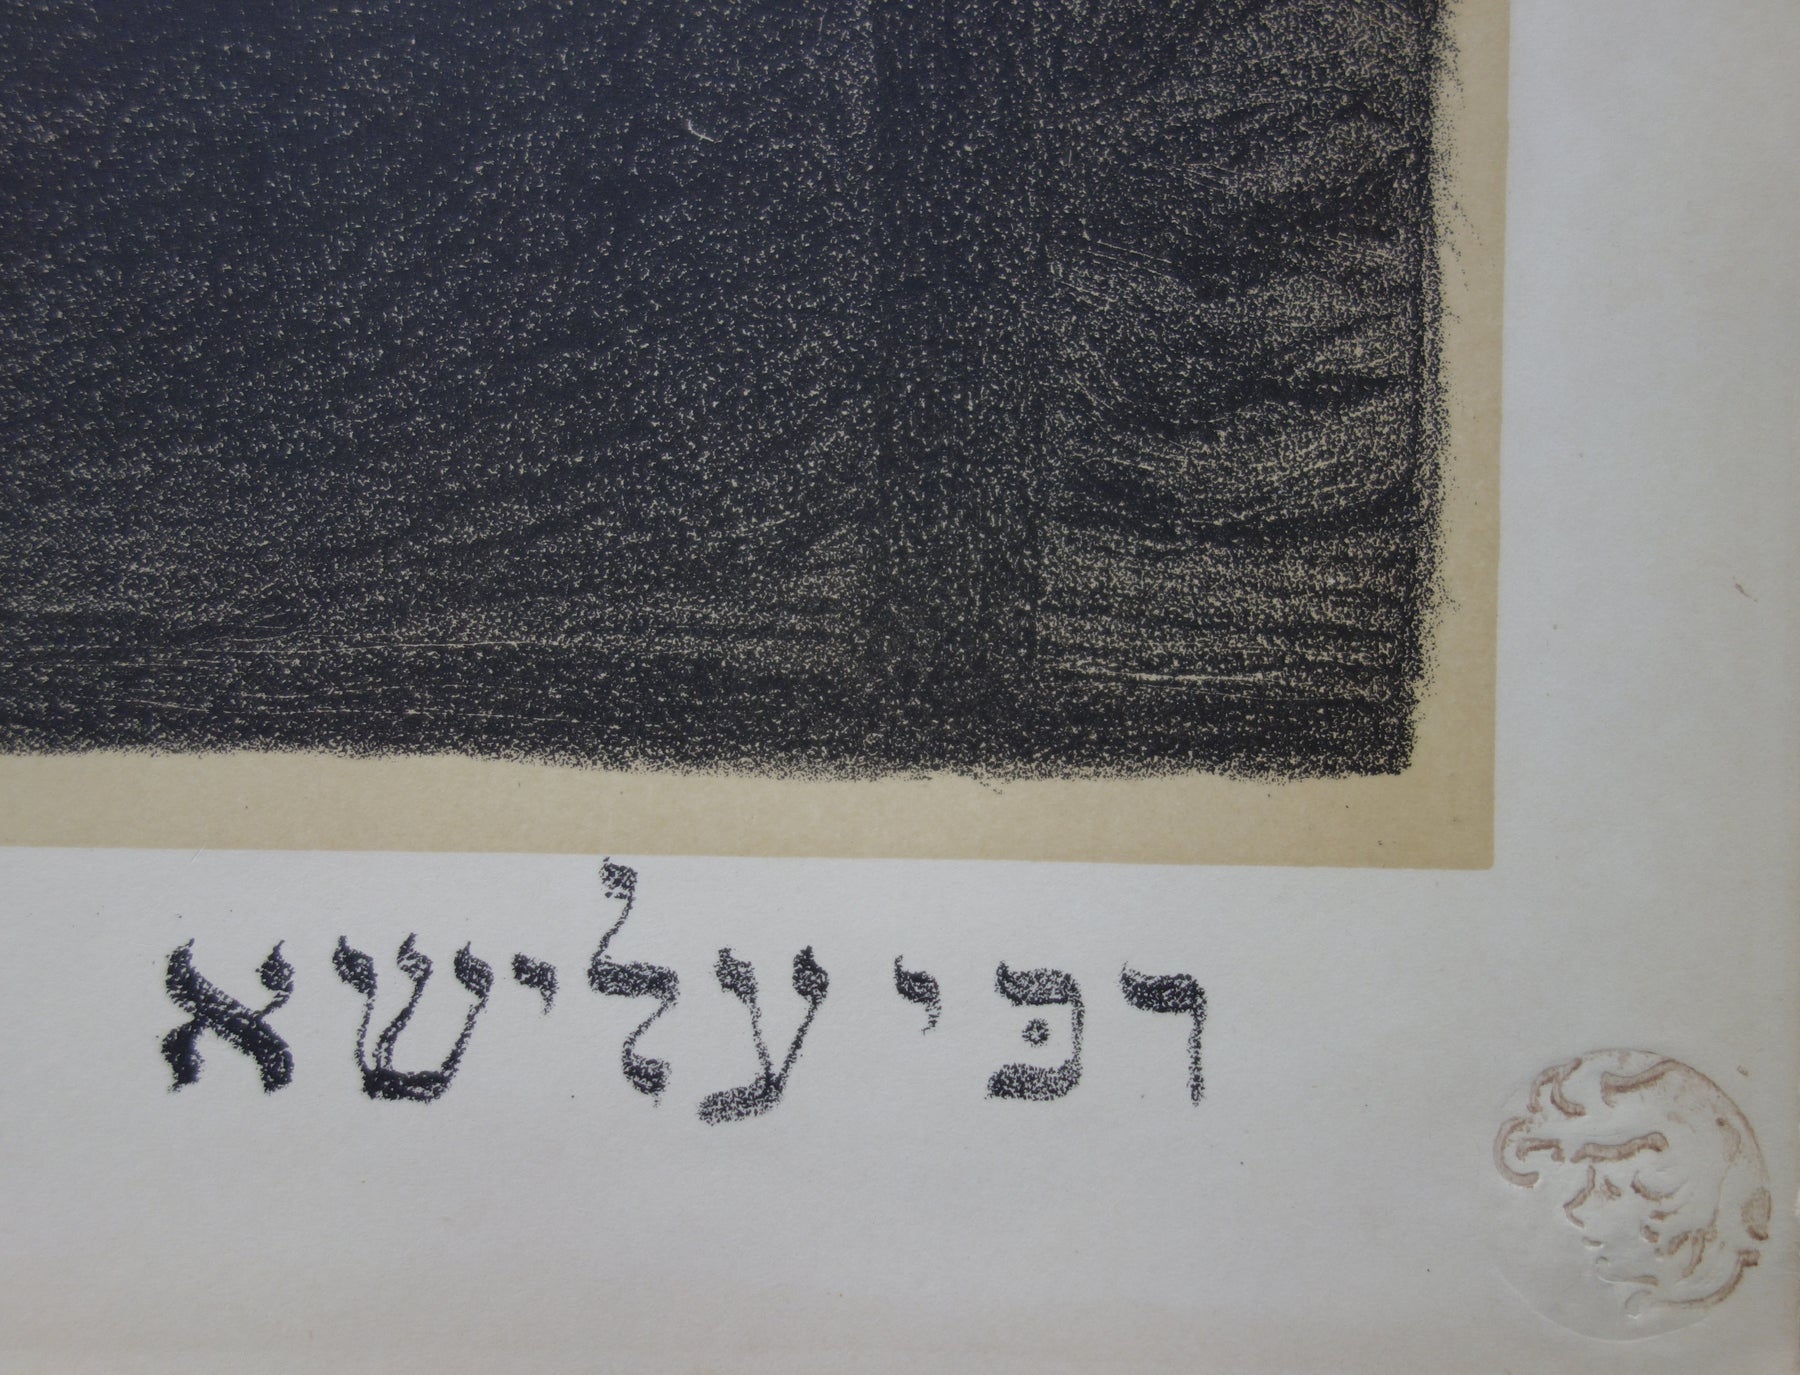 רבּי עלישא